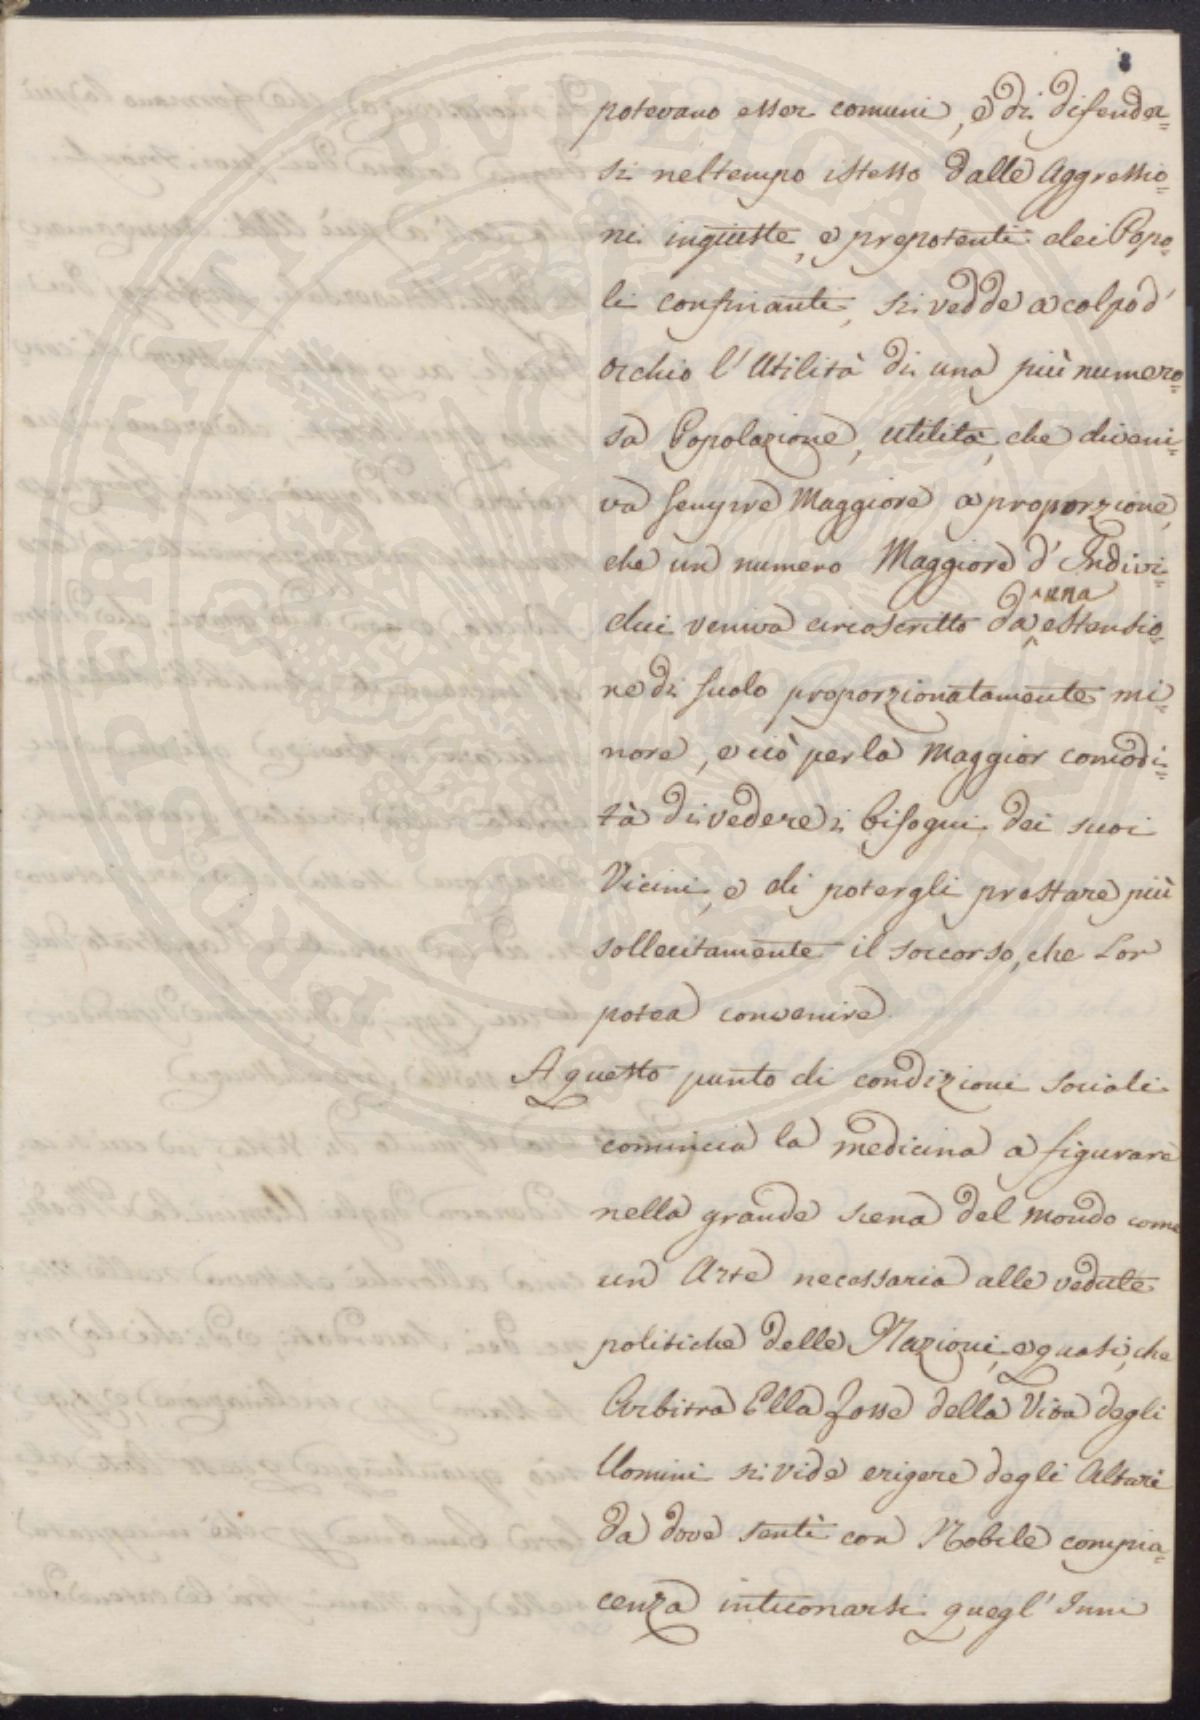 8
potevano esser comuni, e di difender=
si nel tempo istesso dalle Aggressio=
ni ingiuste, e prepotenti dei Popo=
li confinanti, si vedde a colpo d'
occhio l'Utilità di una più numero=
sa Popolazione, utilità, che diveni=
va sempre Maggiore a proporzione,
che un numero Maggiore d'Indivi=
dui veniva circoscritto da una estensio=
ne di suolo proporzionatamente mi=
nore, e ciò per la Maggior comodi=
tà di vedere i bisogni dei suoi
Vicini, e di potergli prestare più
sollecitamente il soccorso, che Lor
potea convenire.
A questo punto di condizioni sociali
comincia la medicina a figurare
nella grande scena del mondo come
un Arte necessaria alle vedute
politiche delle Nazioni, e quasi, che
Arbitra Ella fosse della Vita degli
Uomini si vide erigere degli Altari
da dove sentì con Nobile compia=
cenza intuonarsi quegl'Inni